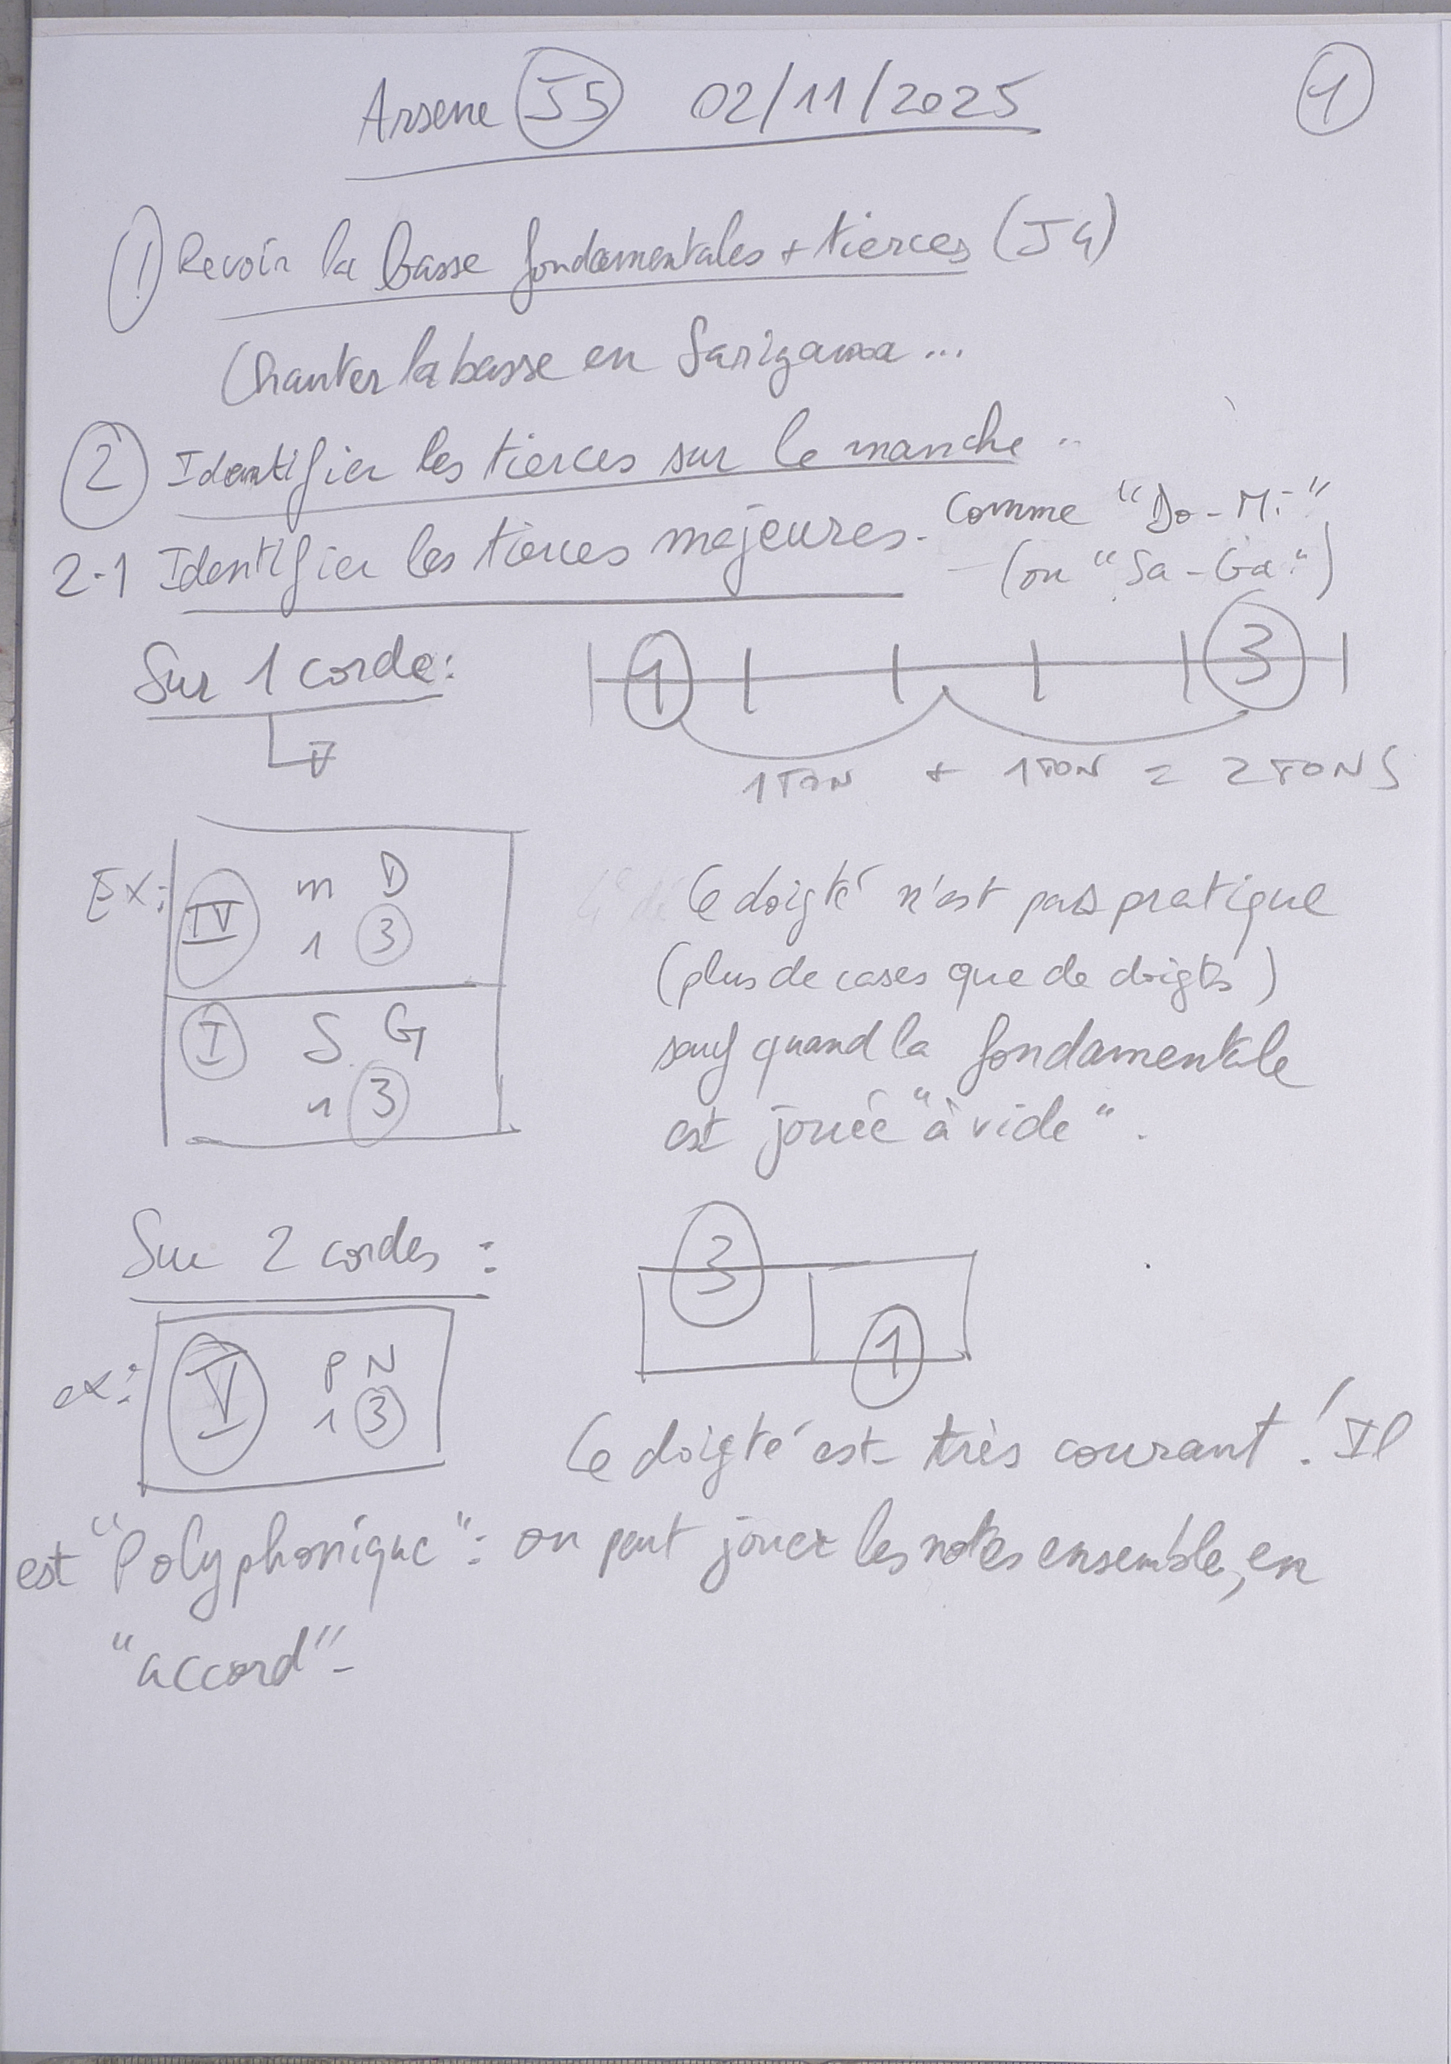 Arsene J5 02/11/2025 1
1 Revoir la basse fondamentales + tierces (J4)
Chanter la basse en Sarigama ...
2 Identifier les tierces sur le manche ..
2-1 Identifier les tierces majeures. comme "Do - Mi"
(ou "Sa - Ga")
Sur 1 corde :
1 3
1 TON + 1 TON = 2 TONS
Ex : IV m D
1 3
I S G
1 3
Ce doigté n'est pas pratique
(plus de cases que de doigts)
sauf quand la fondamentale
est jouée "à vide".
Sur 2 cordes :
3
1
ex : V P N
1 3
Ce doigté est très courant ! Il
est "Polyphonique" : on peut jouer les notes ensemble, en
"accord" -